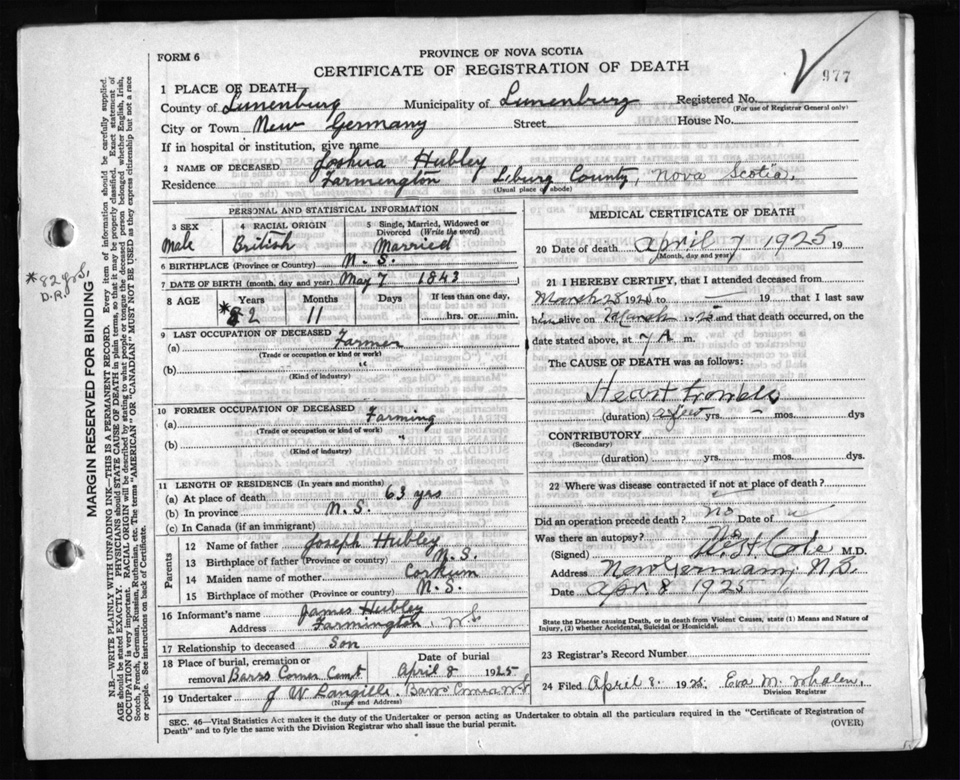 PROVINCE OF NOVA SCOTIA
FORM 6
CERTIFICATE OF REGISTRATION OF DEATH
977
1 PLACE OF DEATH
County of Lunenburg Municipality of Lunenburg Registered No.
(For use of Registrar General only)
City or Town New Germany Street House No.
If in hospital or institution, give name
2 NAME OF DECEASED Joshua Hubley
Residence Farmington L'burg County, Nova Scotia.
(Usual place of abode)
PERSONAL AND STATISTICAL INFORMATION
3 SEX 4 RACIAL ORIGIN 5 Single, Married, Widowed or Divorced (Write the word)
Male British Married
6 BIRTHPLACE (Province or Country) N. S.
7 DATE OF BIRTH (month, day and year) May 7 1843
8 AGE Years Months Days If less than one day,
*82 11 hrs. or min.
9 LAST OCCUPATION OF DECEASED
(a) Farmer
(Trade or occupation or kind or work)
(b) "
(Kind of industry)
10 FORMER OCCUPATION OF DECEASED
(a) Farming
(Trade or occupation or kind of work)
(b) "
(Kind of industry)
11 LENGTH OF RESIDENCE (In years and months)
(a) At place of death 63 yrs
(b) In province N. S.
(c) In Canada (if an immigrant)
Parents
12 Name of father Joseph Hubley
13 Birthplace of father (Province or country) N. S.
14 Maiden name of mother Corkum
15 Birthplace of mother (Province or country) N. S.
16 Informant's name James Hubley
Address Farmington, N S
17 Relationship to deceased Son
18 Place of burial, cremation or removal Barss Corner Cemt Date of burial April 8 1925
19 Undertaker J W Langille. Barss Corner N S
(Name and Address)
MEDICAL CERTIFICATE OF DEATH
20 Date of death April 7 1925 19
(Month, day and year)
21 I HEREBY CERTIFY, that I attended deceased from
March 25 1925 to — 19 that I last saw
him alive on March 1925 and that death occurred, on
date stated above, at 7 A m.
The CAUSE OF DEATH was as follows:
Heart trouble
(duration) a few yrs. — mos. dys
CONTRIBUTORY
(Secondary)
(duration) yrs. mos. dys.
22 Where was disease contracted if not at place of death?
Did an operation precede death? no Date of
Was there an autopsy? No
(Signed) M.D.
Address New Germany, N.S.
Date Apr. 8 1925
State the Disease causing Death, or in death from Violent Causes, state (1) Means and Nature of Injury, (2) whether Accidental, Suicidal or Homicidal.
23 Registrar's Record Number
24 Filed April 8. 1925. Eva M. Whalen,
Division Registrar
SEC. 46—Vital Statistics Act makes it the duty of the Undertaker or person acting as Undertaker to obtain all the particulars required in the "Certificate of Registration of
Death" and to fyle the same with the Division Registrar who shall issue the burial permit. (OVER)
*82 yrs.
D.R.
MARGIN RESERVED FOR BINDING
N.B.—WRITE PLAINLY WITH UNFADING INK—THIS IS A PERMANENT RECORD. Every item of information should be carefully supplied.
AGE should be stated EXACTLY. PHYSICIANS should STATE CAUSE OF DEATH in plain terms, so that it may be properly classified. Exact statement of
OCCUPATION is very important. RACIAL ORIGIN will be described by stating to what people or tongue the deceased person belonged whether English, Irish,
Scotch, French, German, Russian, Ruthenian, etc. The terms "AMERICAN" OR "CANADIAN" MUST NOT BE USED as they express citizenship but not a race
or people. See instructions on back of Certificate.